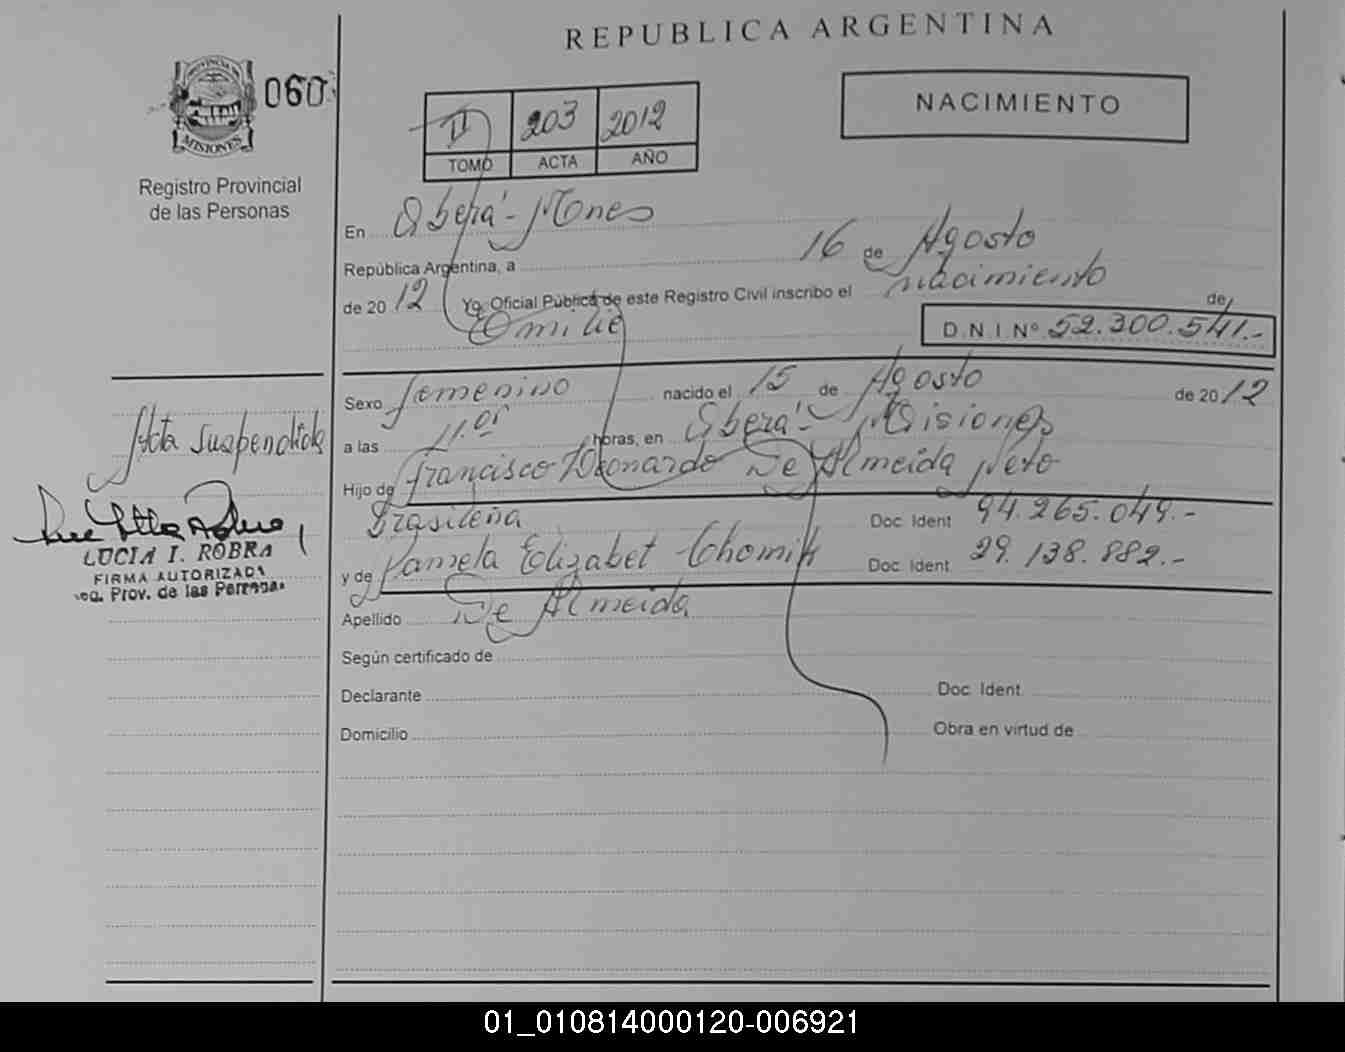 REPUBLICA ARGENTINA
PROVINCIA DE
MISIONES
060
NACIMIENTO
II 203 2012
TOMO ACTA AÑO
Registro Provincial
de las Personas
En Oberá - Mnes
República Argentina, a 16 de Agosto
de 20 12 Yo, Oficial Público de este Registro Civil inscribo el nacimiento
de Emilie
D.N.I. Nº 52.300.541.-
Sexo femenino nacido el 15 de Agosto de 20 12
a las 11.01 horas, en Oberá - Misiones
Hijo de Francisco Leonardo De Almeida Neto
Brasileña Doc. Ident. 94.265.049.-
y de Pamela Elizabet Chomik Doc. Ident. 29.138.882.-
Apellido De Almeida
Según certificado de
Declarante Doc. Ident.
Domicilio Obra en virtud de
Acta suspendida
LUCIA I. ROBRA
FIRMA AUTORIZADA
Reg. Prov. de las Personas
01_010814000120-006921